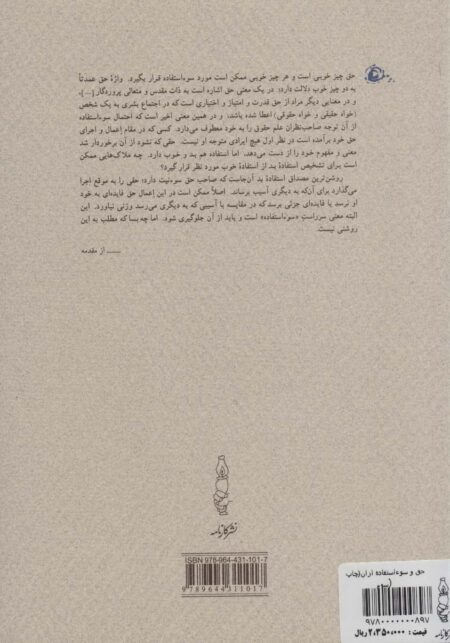 حق چیز خوبی است و هر چیز خوبی ممکن است مورد سوءاستفاده قرار بگیرد. واژهٔ حق عمدتاً
به دو چیز خوب دلالت دارد: در یک معنی حق اشاره است به ذات مقدس و متعالی پروردگار [...]،
و در معنایی دیگر مراد از حق قدرت و امتیاز و اختیاری است که در اجتماع بشری به یک شخص
(خواه حقیقی و خواه حقوقی) اعطا شده باشد، و در همین معنی اخیر است که احتمال سوءاستفاده
از آن توجه صاحب‌نظران علم حقوق را به خود معطوف می‌دارد. کسی که در مقام إعمال و اجرای
حق خود برآمده است در نظر اول هیچ ایرادی متوجه او نیست. حقی که نشود از آن برخوردار شد
معنی و مفهوم خود را از دست می‌دهد، اما استفاده هم بد و خوب دارد. چه ملاک‌هایی ممکن
است برای تشخیص استفادهٔ بد از استفادهٔ خوب مورد نظر قرار گیرد؟
روشن‌ترین مصداق استفادهٔ بد آن‌جاست که صاحب حق سوءنیت دارد، حقی را به موقع اجرا
می‌گذارد برای آن‌که به دیگری آسیب برساند. اصلاً ممکن است در این إعمال حق فایده‌ای به خود
او نرسد یا فایده‌ای جزئی برسد که در مقایسه با آسیبی که به دیگری می‌رسد وزنی نیاورد. این
البته معنی سرراستِ «سوءاستفاده» است و باید از آن جلوگیری شود. اما چه بسا که مطلب به این
روشنی نیست.
از مقدمه
نشر کارنامه
ISBN 978-964-431-101-7
9 789644 311017
حق و سوءاستفاده از آن(چاپ
۹۷۸۰۰۰۰۰۰۰۸۹۷
قیمت : ۲،۳۵۰،۰۰۰ ریال
کارنامه